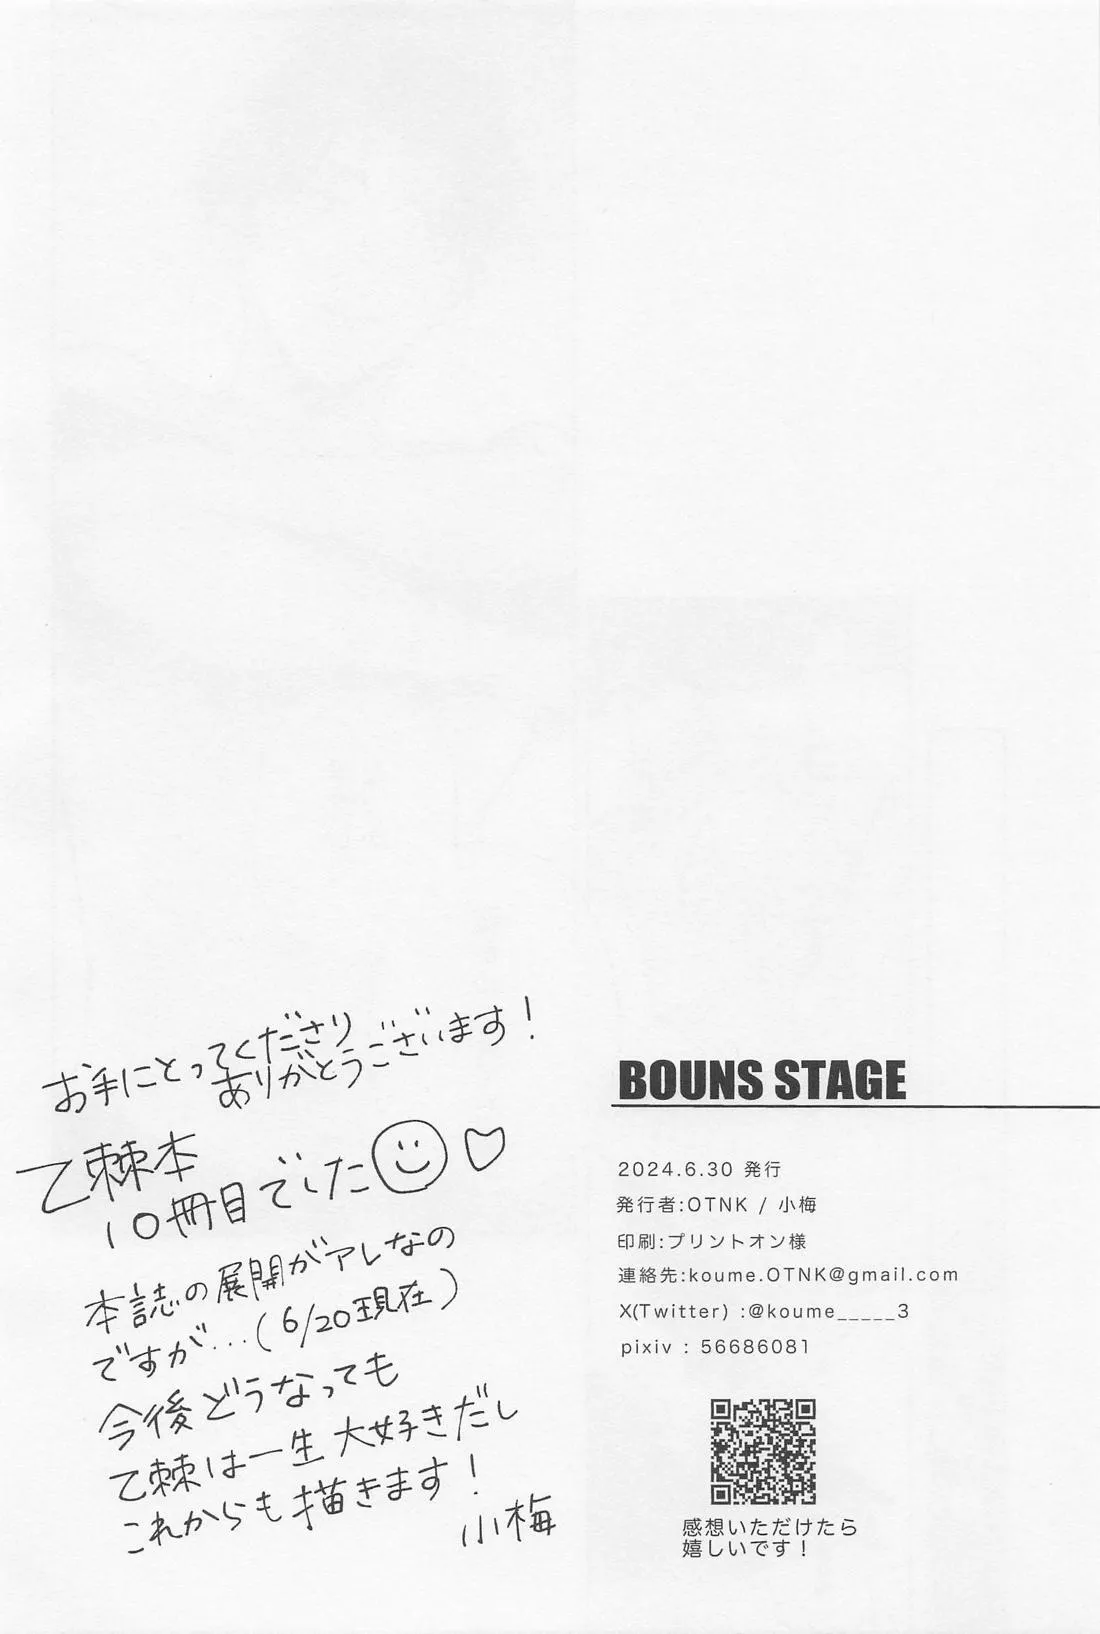 お手にとってくださり
ありがとうございます！
乙棘本
10冊目でした
本誌の展開がアレなの
ですが…（6/20現在）
今後どうなっても
乙棘は一生大好きだし
これからも描きます！
小梅
BOUNS STAGE
2024.6.30 発行
発行者:OTNK / 小梅
印刷:プリントオン様
連絡先:koume.OTNK@gmail.com
X(Twitter) :@koume_____3
pixiv : 56686081
感想いただけたら
嬉しいです！